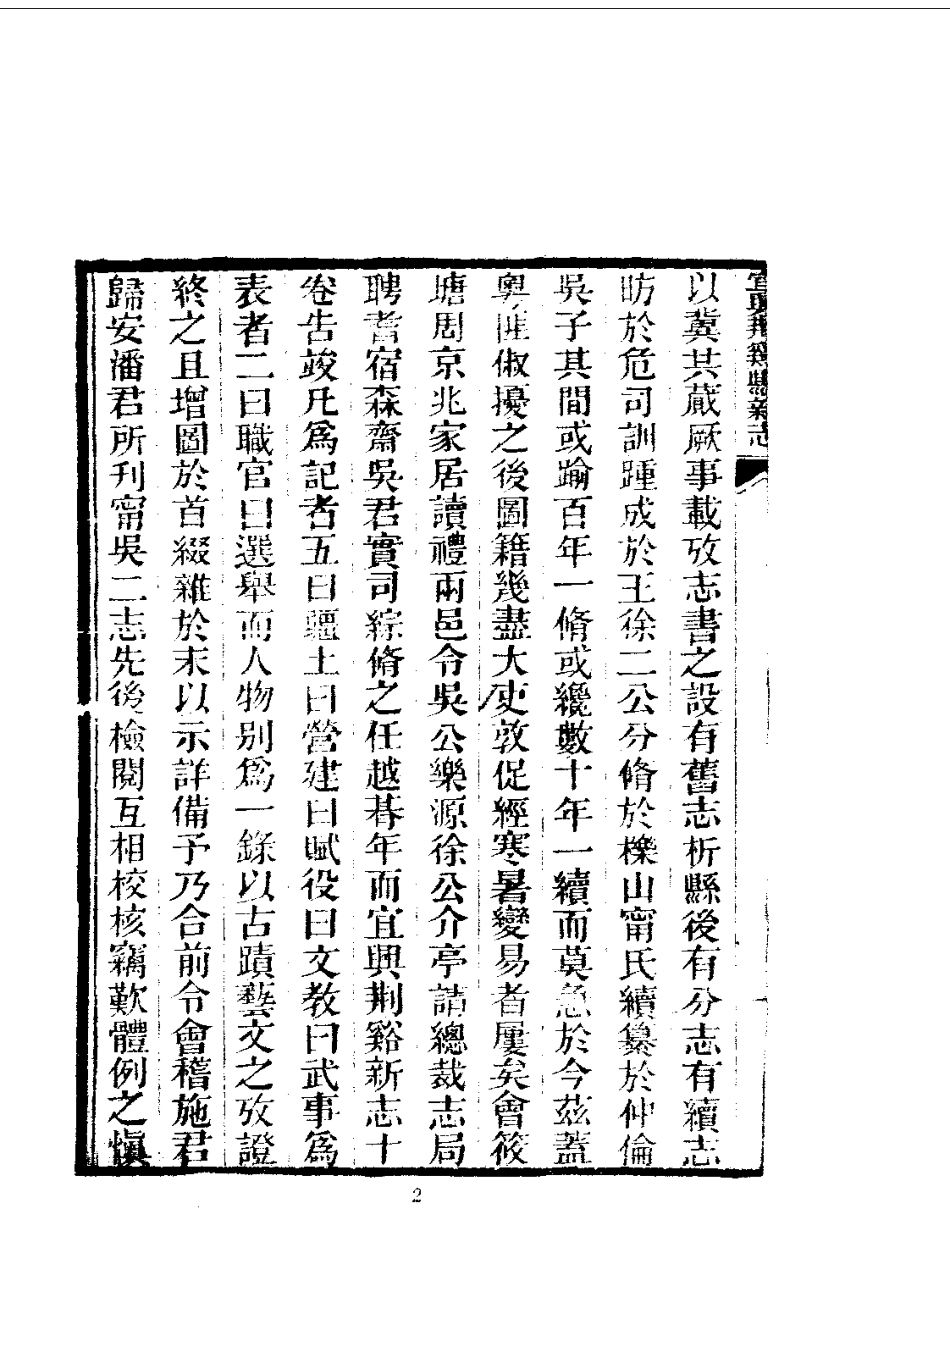 宜興荊谿縣新志
以冀共蕆厥事載攷志書之設有舊志析縣後有分志有續志
昉於危司訓踵成於王徐二公分脩於櫟山甯氏續纂於仲倫
吳子其間或踰百年一脩或纔數十年一續而莫急於今茲蓋
粵匪俶擾之後圖籍幾盡大吏敦促經寒暑變易者屢矣會筱
塘周京兆家居讀禮兩邑令吳公樂源徐公介亭請總裁志局
聘耆宿森齋吳君實司綜脩之任越朞年而宜興荆谿新志十
卷告竣凡為記者五曰疆土曰營建曰賦役曰文教曰武事為
表者二曰職官曰選舉而人物別為一錄以古蹟藝文之攷證
終之且增圖於首綴雜於末以示詳備予乃合前令會稽施君
歸安潘君所刊甯吳二志先後檢閱互相校核竊歎體例之愼
2